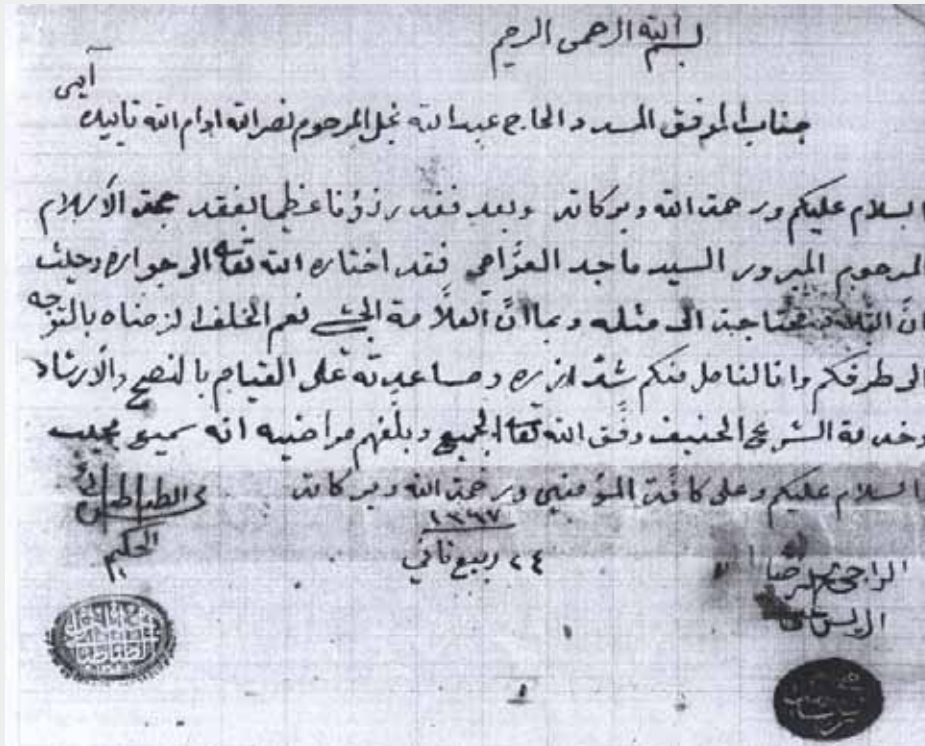 بسم الله الرحمن الرحيم
جناب الموفق المسدد الحاج عبد الله نجل المرحوم نصر الله ادام الله تأييده آمين
السلام عليكم ورحمة الله وبركاته وبعد فقد رزؤنا عظيما بفقد حجة الأسلام
المرحوم المبرور السيد ماجد العوامي فقد اختاره الله تعالى الى جواره وحيث
انَّ البلاد محتاجة الى مثله وبما أنَّ العلاَّمة الخشي نعم الخلف الزمناه بالتوجه
الى طرفكم وانا لنامل منكم شدّ ازره ومساعدته على القيام بالنصح والأرشاد
وخدمة الشرع الحنيف وفَّق الله تعالى الجميع وبلَّغهم مراضيه انه سميع مجيب
والسلام عليكم وعلى كافَّة المؤمنين ورحمة الله وبركاته
الطباطبائي
الحكيم
١٣٦٧
٢٤ ربيع ثاني
الراجي محمد رضا
ال يس